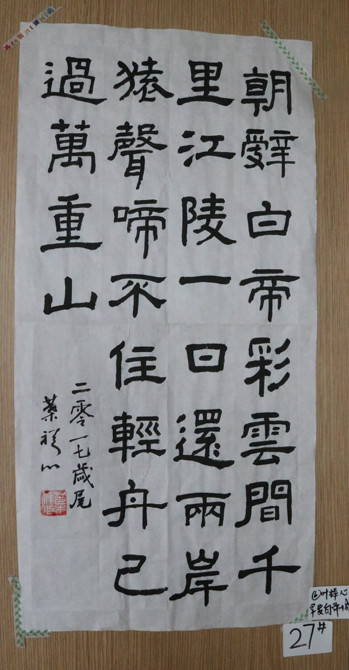 朝辭白帝彩雲間千
里江陵一日還兩岸
猿聲啼不住輕舟已
過萬重山
二零一七歲尾
葉梓心
叶梓心
早发白帝城
27#